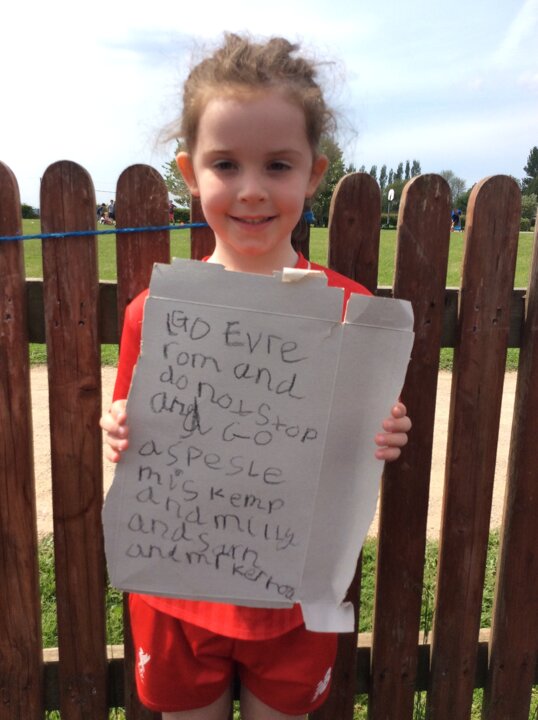 GO EVrE
rom and
do not stop
and GO
aspesle
mis kemp
and milly
and sam
and mr